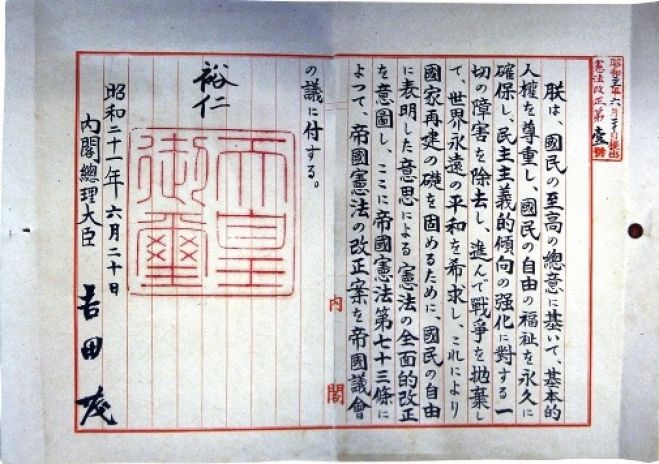 昭和二十一年六月二十日提出
憲法改正第壹號
朕は、國民の至高の總意に基いて、基本的
人權を尊重し、國民の自由の福祉を永久に
確保し、民主主義的傾向の强化に對する一
切の障害を除去し、進んで戰爭を抛棄し
て、世界永遠の平和を希求し、これにより
國家再建の礎を固めるために、國民の自由
に表明した意思による憲法の全面的改正
を意圖し、ここに帝國憲法第七十三條に
よつて、帝國憲法の改正案を帝國議會
の議に付する。
裕仁
天皇御璽
昭和二十一年六月二十日
內閣總理大臣 吉田茂
內閣